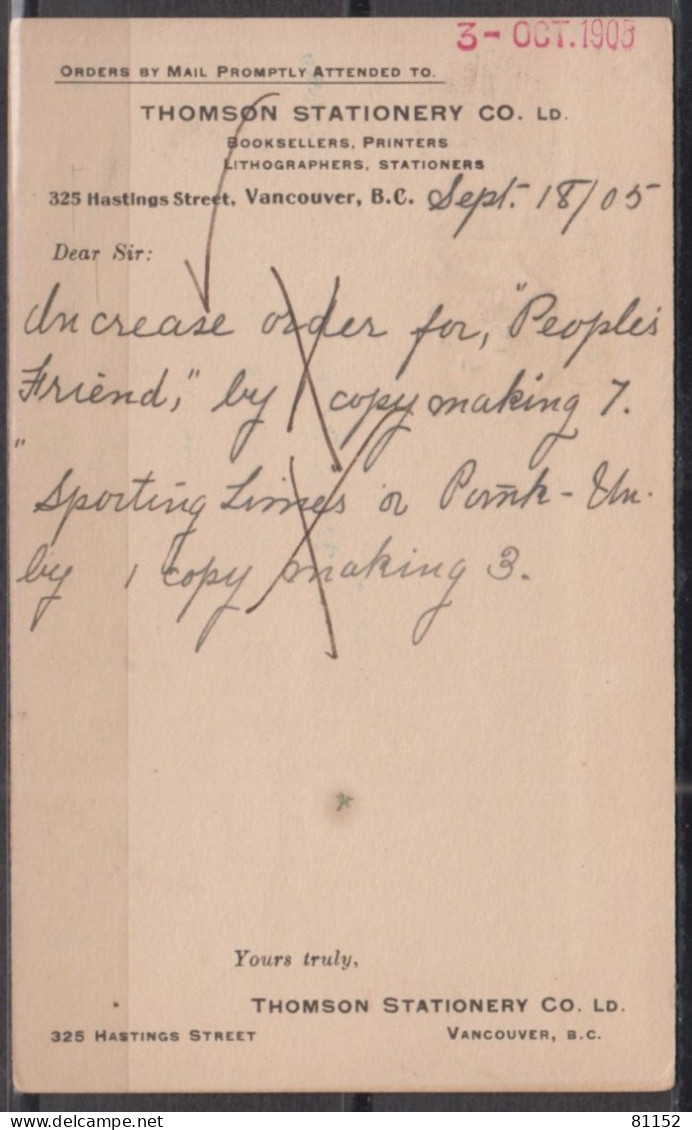 3- OCT.1905
ORDERS BY MAIL PROMPTLY ATTENDED TO.
THOMSON STATIONERY CO. LD.
BOOKSELLERS, PRINTERS
LITHOGRAPHERS, STATIONERS
325 Hastings Street, Vancouver, B.C. Sept. 18/05
Dear Sir:
Increase order for, "People's
Friend," by 1 copy making 7.
"Sporting Times" or Pink-Un.
by 1 copy making 3.
Yours truly,
THOMSON STATIONERY CO. LD.
325 HASTINGS STREET VANCOUVER, B.C.
delcampe.net 81152